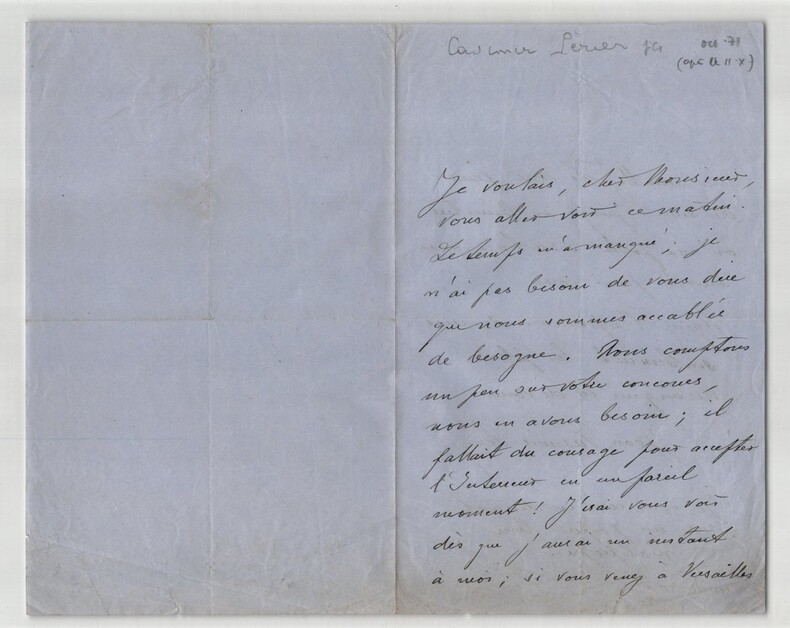 Casimir Périer fils oct. 71
(apr le 11-X)
Je voulais, cher Monsieur,
vous aller voir ce matin.
Le temps m'a manqué; je
n'ai pas besoin de vous dire
que nous sommes accablés
de besogne. Nous comptons
un peu sur votre concours,
nous en avons besoin; il
fallait du courage pour accepter
l'Intérieur en un pareil
moment! J'irai vous voir
dès que j'aurai un instant
à moi; si vous venez à Versailles